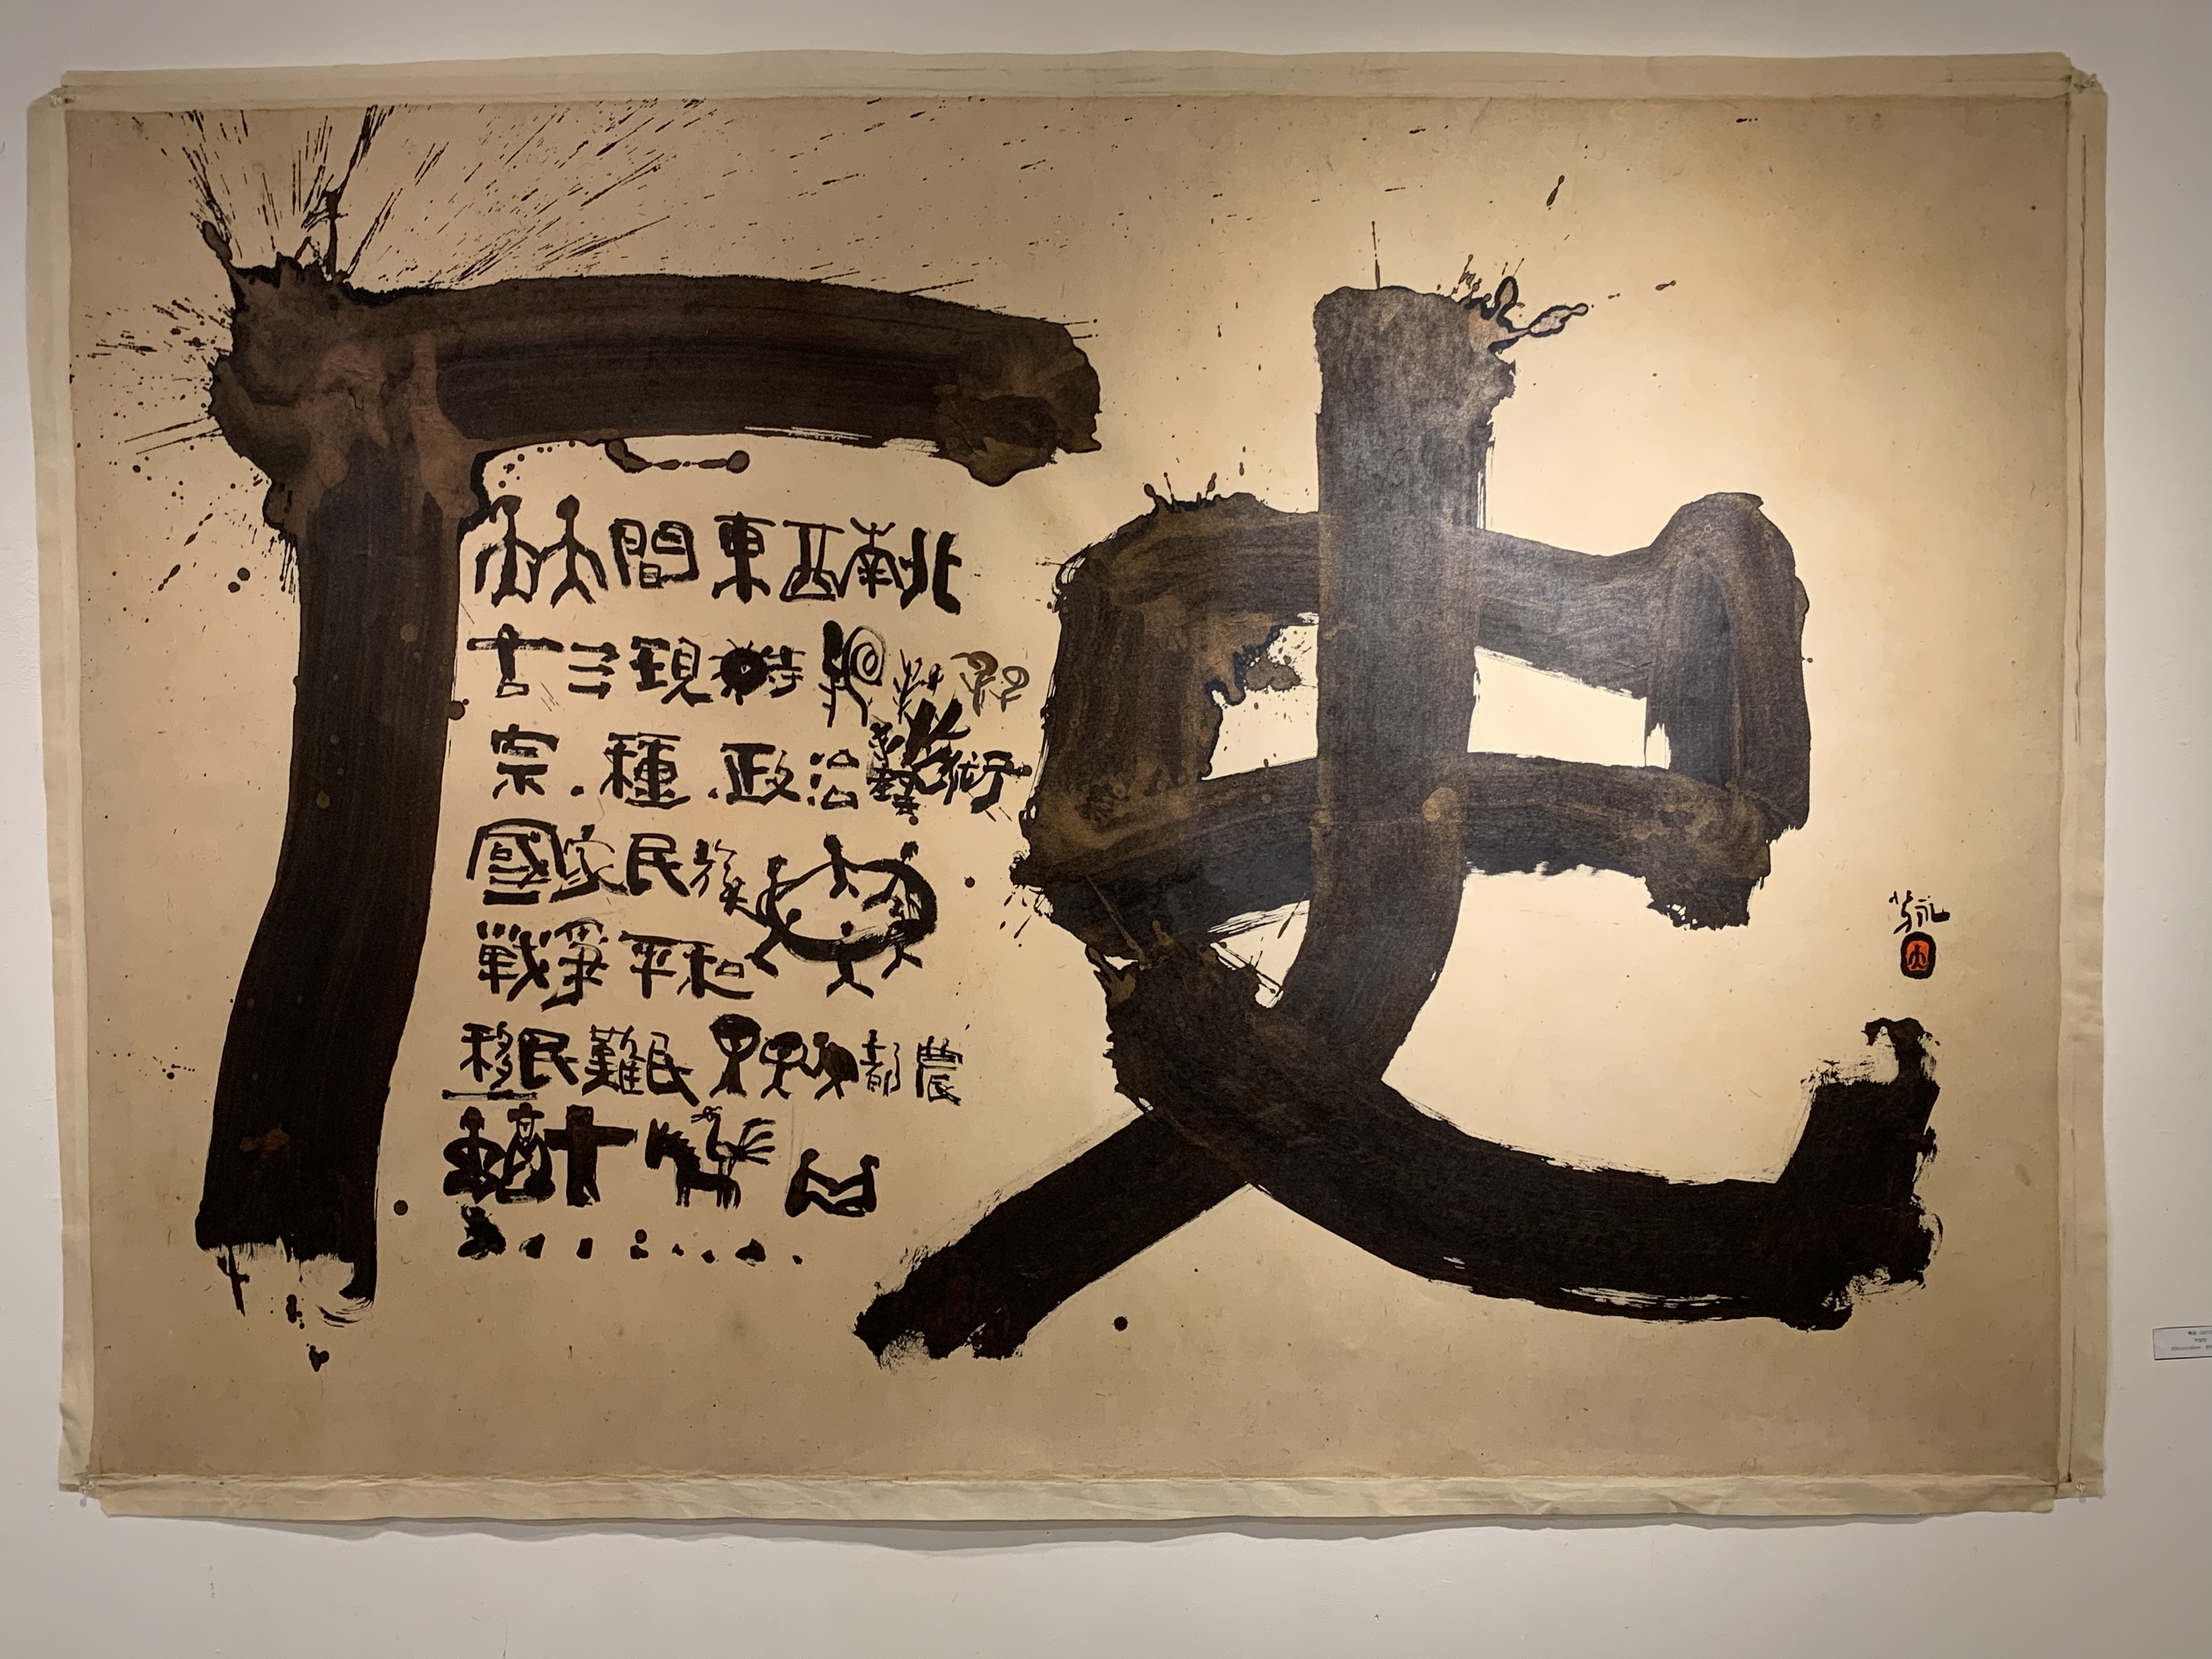 厂史
間東西南北
古 現時
宗.種.政治藝術
國家民族
戰爭平和
移民難民 都農
芳永